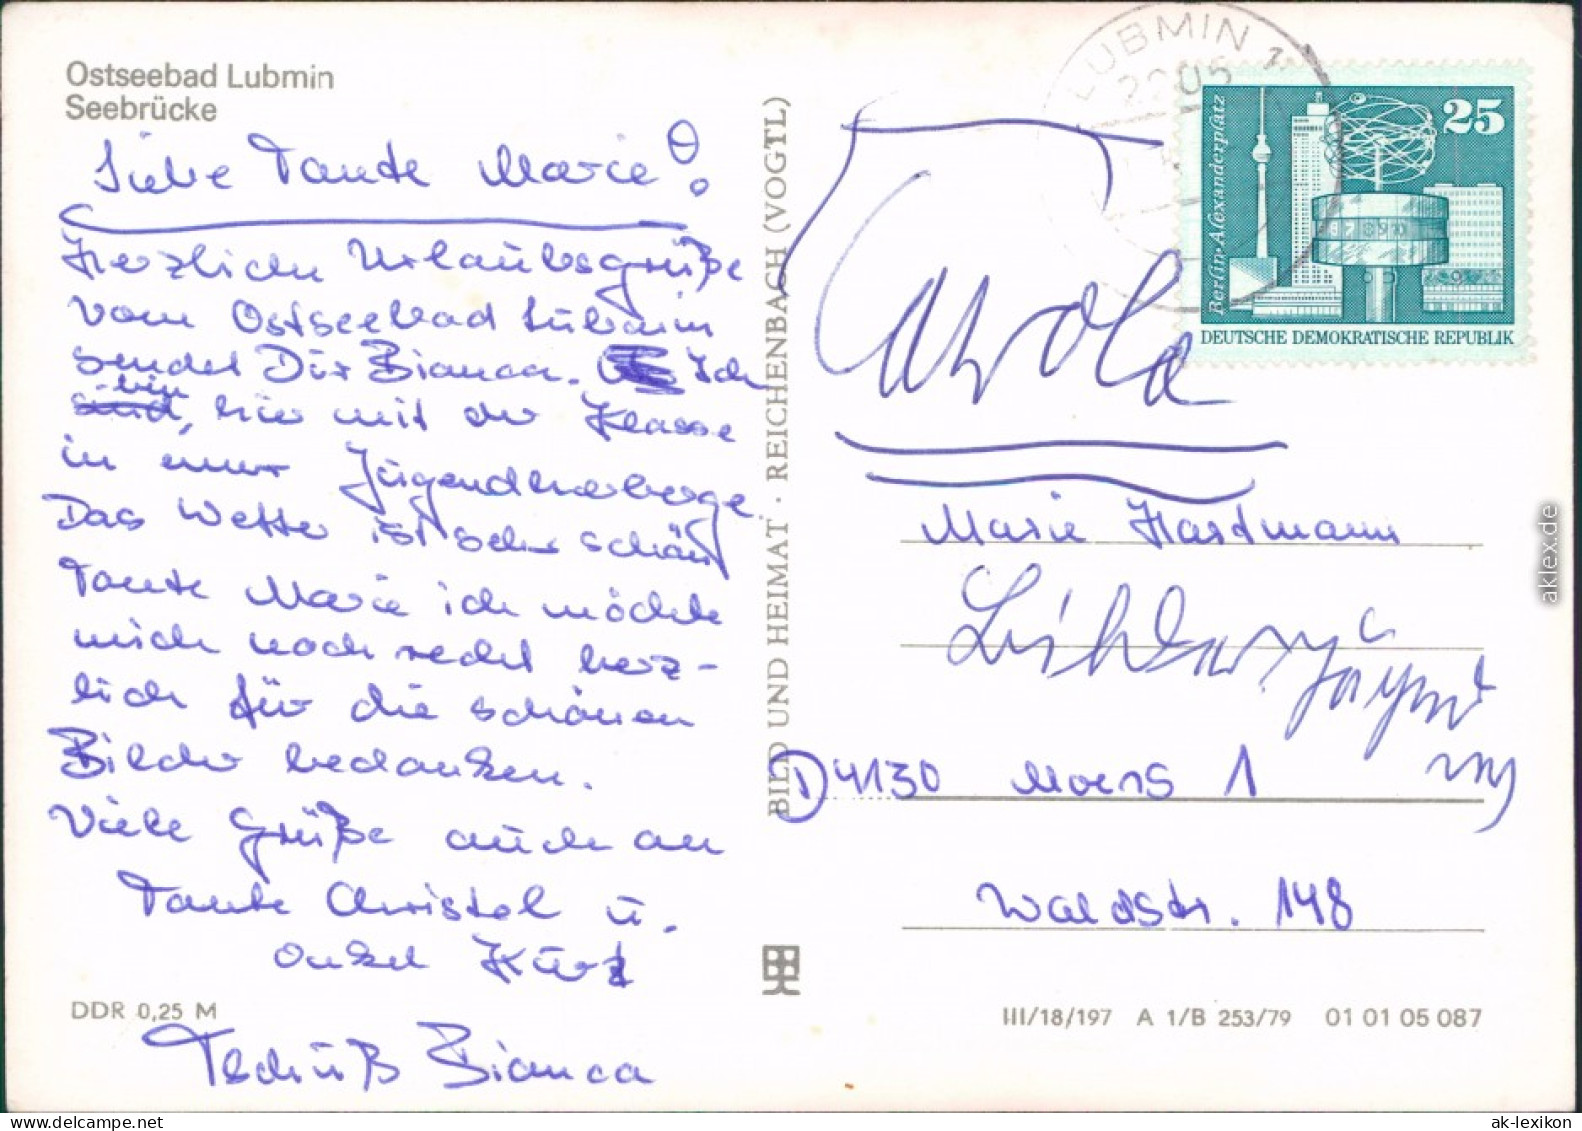 Ostseebad Lubmin
Seebrücke
Liebe Tante Marie!
Herzliche Urlaubsgrüße
vom Ostseebad Lubmin
sendet Dir Bianca. Ich
bin, hier mit der Klasse
in einer Jugendherberge
Das Wetter ist sehr schön
Tante Marie ich möchte
mich noch recht herz-
lich für die schönen
Bilder bedanken.
Viele Grüße auch an
Tante Christel u.
Onkel Kurt
Tschüß Bianca
DDR 0,25 M
BILD UND HEIMAT · REICHENBACH (VOGTL)
LUBMIN
2205
Berlin·Alexanderplatz
25
DEUTSCHE DEMOKRATISCHE REPUBLIK
Carola
Marie Hartmann
D 4130 Moers 1
Waldstr. 148
III/18/197 A 1/B 253/79 01 01 05 087
aklex.de
www.delcampe.net
ak-lexikon